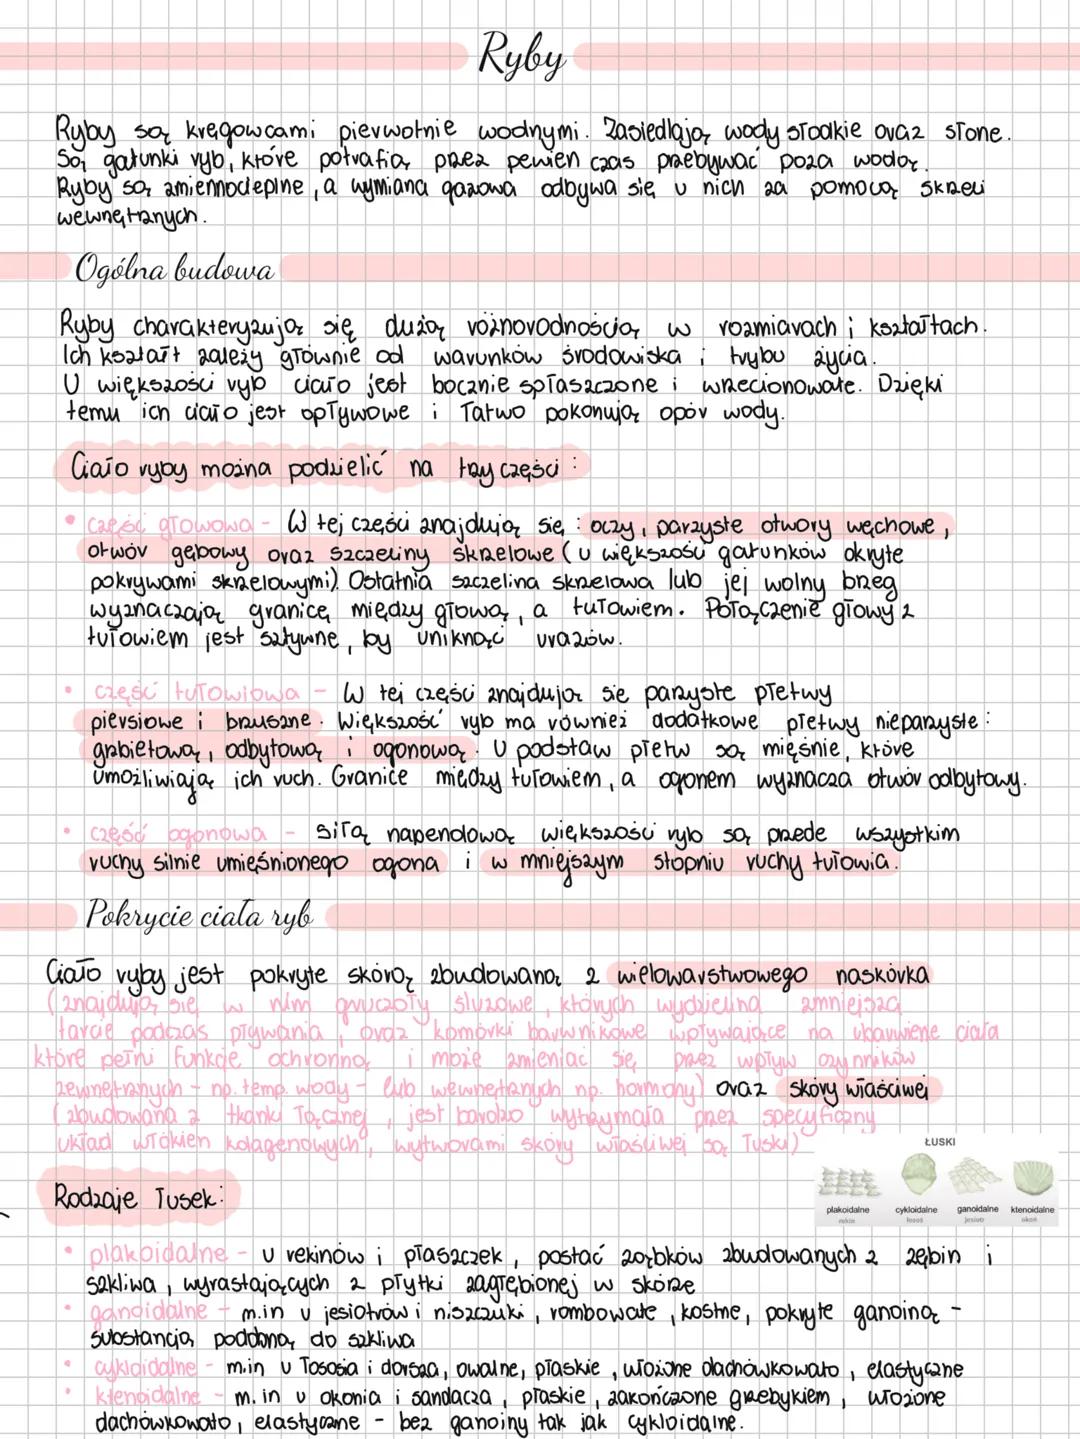 Ryby
Ryby są kręgowcami pierwotnie wodnymi. Zasiedlają wody słodkie oraz słone.
Są gatunki ryb, które potrafią przez pewien czas przebywać poza wodą.
Ryby są zmiennocieplne, a wymiana gazowa odbywa się u nich za pomocą skrzeli
wewnętrznych.
Ogólna budowa
Ryby charakteryzują się dużą różnorodnością w rozmiarach i kształtach.
Ich kształt zależy głównie od warunków środowiska i trybu życia.
U większości ryb ciało jest bocznie spłaszczone i wrzecionowate. Dzięki
temu ich ciało jest opływowe i łatwo pokonują opór wody.
Ciało ryby można podzielić na trzy części:
• część głowowa - W tej części znajdują się : oczy, parzyste otwory węchowe,
otwór gębowy oraz szczeliny skrzelowe (u większości gatunków okryte
pokrywami skrzelowymi). Ostatnia szczelina skrzelowa lub jej wolny brzeg
wyznaczają granicę między głową, a tułowiem. Połączenie głowy z
tułowiem jest sztywne, by uniknąć urazów.
• część tułowiowa - W tej części znajdują się parzyste płetwy
piersiowe i brzuszne. Większość ryb ma również dodatkowe płetwy nieparzyste:
grzbietową, odbytową i ogonową. U podstaw płetw są mięśnie, które
umożliwiają ich ruch. Granice między tułowiem, a ogonem wyznacza otwór odbytowy.
• część ogonowa - siłą napendową większości ryb są przede wszystkim
ruchy silnie umięśnionego ogona i w mniejszym stopniu ruchy tułowia.
Pokrycie ciała ryb
Ciało ryby jest pokryte skórą zbudowaną z wielowarstwowego naskórka
(znajdują się w nim gruczoły śluzowe, których wydzielina zmniejsza
tarcie podczas pływania, oraz komórki barwnikowe wpływające na ubarwienie ciała
które pełni funkcję ochronną i może zmieniać się przez wpływ czynników
zewnętrznych - np. temp. wody - lub wewnętrznych np. hormony) oraz skóry właściwej
(zbudowana z tkanki łącznej, jest bardzo wytrzymała przez specyficzny
układ włókien kolagenowych, wytworami skóry właściwej są łuski)
ŁUSKI
plakoidalne cykloidalne ganoidalne ktenoidalne
rekin łosoś jesiotr okoń
Rodzaje łusek:
• plakoidalne - u rekinów i płaszczek, postać ząbków zbudowanych z zębin i
szkliwa, wyrastających z płytki zagłębionej w skórze
• ganoidalne - m.in u jesiotrów i niszczuki, rombowate, kostne, pokryte ganoiną -
substancją podobną do szkliwa
• cykloidalne - m.in u łososia i dorsza, owalne, płaskie, ułożone dachówkowato, elastyczne
• ktenoidalne - m.in u okonia i sandacza, płaskie, zakończone grzebykiem, ułożone
dachówkowato, elastyczne - bez ganoiny tak jak cykloidalne.